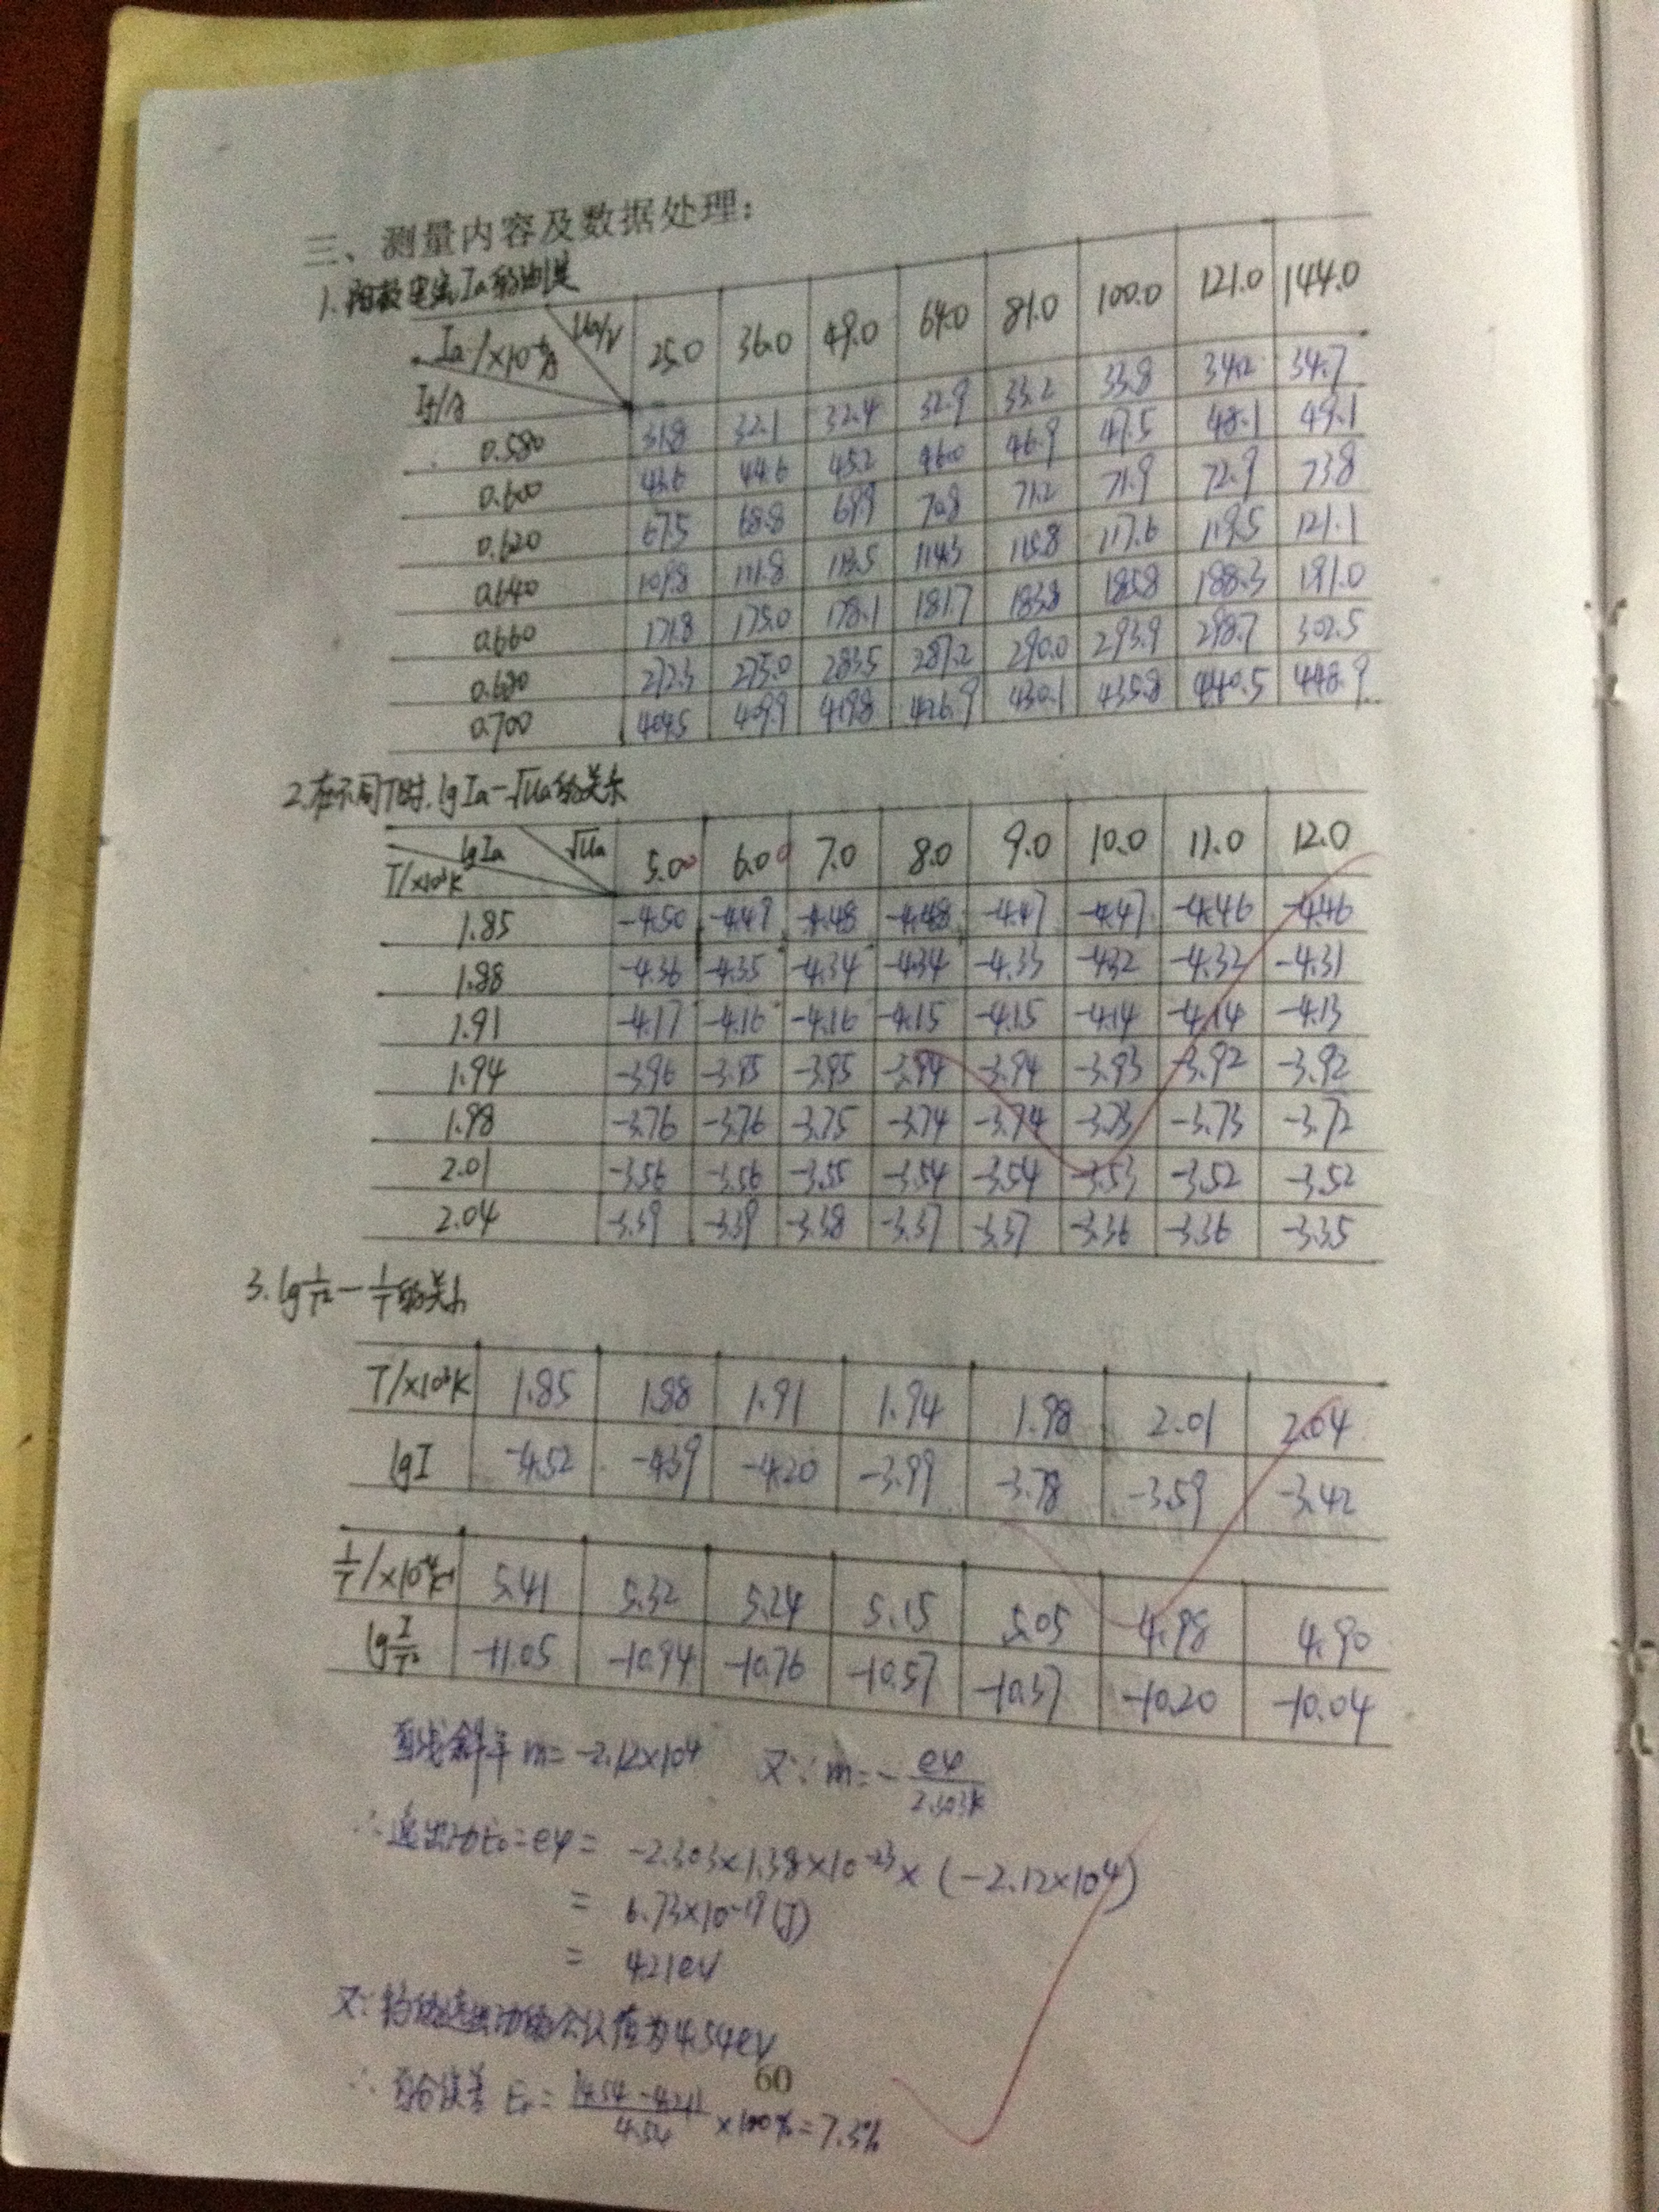 三、测量内容及数据处理:
1.阳极电流Ia的测定
Ia/×10⁻⁶A Ua/V If/A 25.0 36.0 49.0 64.0 81.0 100.0 121.0 144.0
0.580 31.8 32.1 32.4 32.9 33.2 33.8 34.2 34.7
0.600 43.6 44.6 45.2 46.0 46.9 47.5 48.1 49.1
0.620 67.5 68.8 69.9 70.8 71.2 71.9 72.9 73.8
0.640 109.8 111.8 113.5 114.3 115.8 117.6 119.5 121.1
0.660 171.8 175.0 178.1 181.7 183.8 185.8 188.3 191.0
0.680 272.3 275.0 283.5 287.2 290.0 293.9 298.7 302.5
0.700 404.5 409.9 419.8 426.9 430.1 435.8 440.5 448.9
2.在不同T时,lgIa-√Ua的关系
lgIa √Ua T/×10³K 5.00 6.00 7.0 8.0 9.0 10.0 11.0 12.0
1.85 -4.50 -4.49 -4.48 -4.48 -4.47 -4.47 -4.46 -4.46
1.88 -4.36 -4.35 -4.34 -4.34 -4.33 -4.32 -4.32 -4.31
1.91 -4.17 -4.16 -4.16 -4.15 -4.15 -4.14 -4.14 -4.13
1.94 -3.96 -3.95 -3.95 -3.94 -3.94 -3.93 -3.92 -3.92
1.98 -3.76 -3.76 -3.75 -3.74 -3.74 -3.73 -3.73 -3.72
2.01 -3.56 -3.56 -3.55 -3.54 -3.54 -3.53 -3.52 -3.52
2.04 -3.39 -3.39 -3.38 -3.37 -3.37 -3.36 -3.36 -3.35
3. lg I/T² - 1/T的关系
T/×10³K 1.85 1.88 1.91 1.94 1.98 2.01 2.04
lgI -4.52 -4.39 -4.20 -3.99 -3.78 -3.59 -3.42
1/T/×10⁻⁴K⁻¹ 5.41 5.32 5.24 5.15 5.05 4.98 4.90
lg I/T² -11.05 -10.94 -10.76 -10.57 -10.37 -10.20 -10.04
直线斜率 m=-2.12×10⁴ 又∵m=-eφ/2.303k
∴逸出功E₀=eφ= -2.303×1.38×10⁻²³×(-2.12×10⁴)
= 6.73×10⁻¹⁹(J)
= 4.21eV
又∵钨的逸出功的公认值为4.54eV
∴百分误差 Er=|4.54-4.21|/4.54×100%=7.3%
60